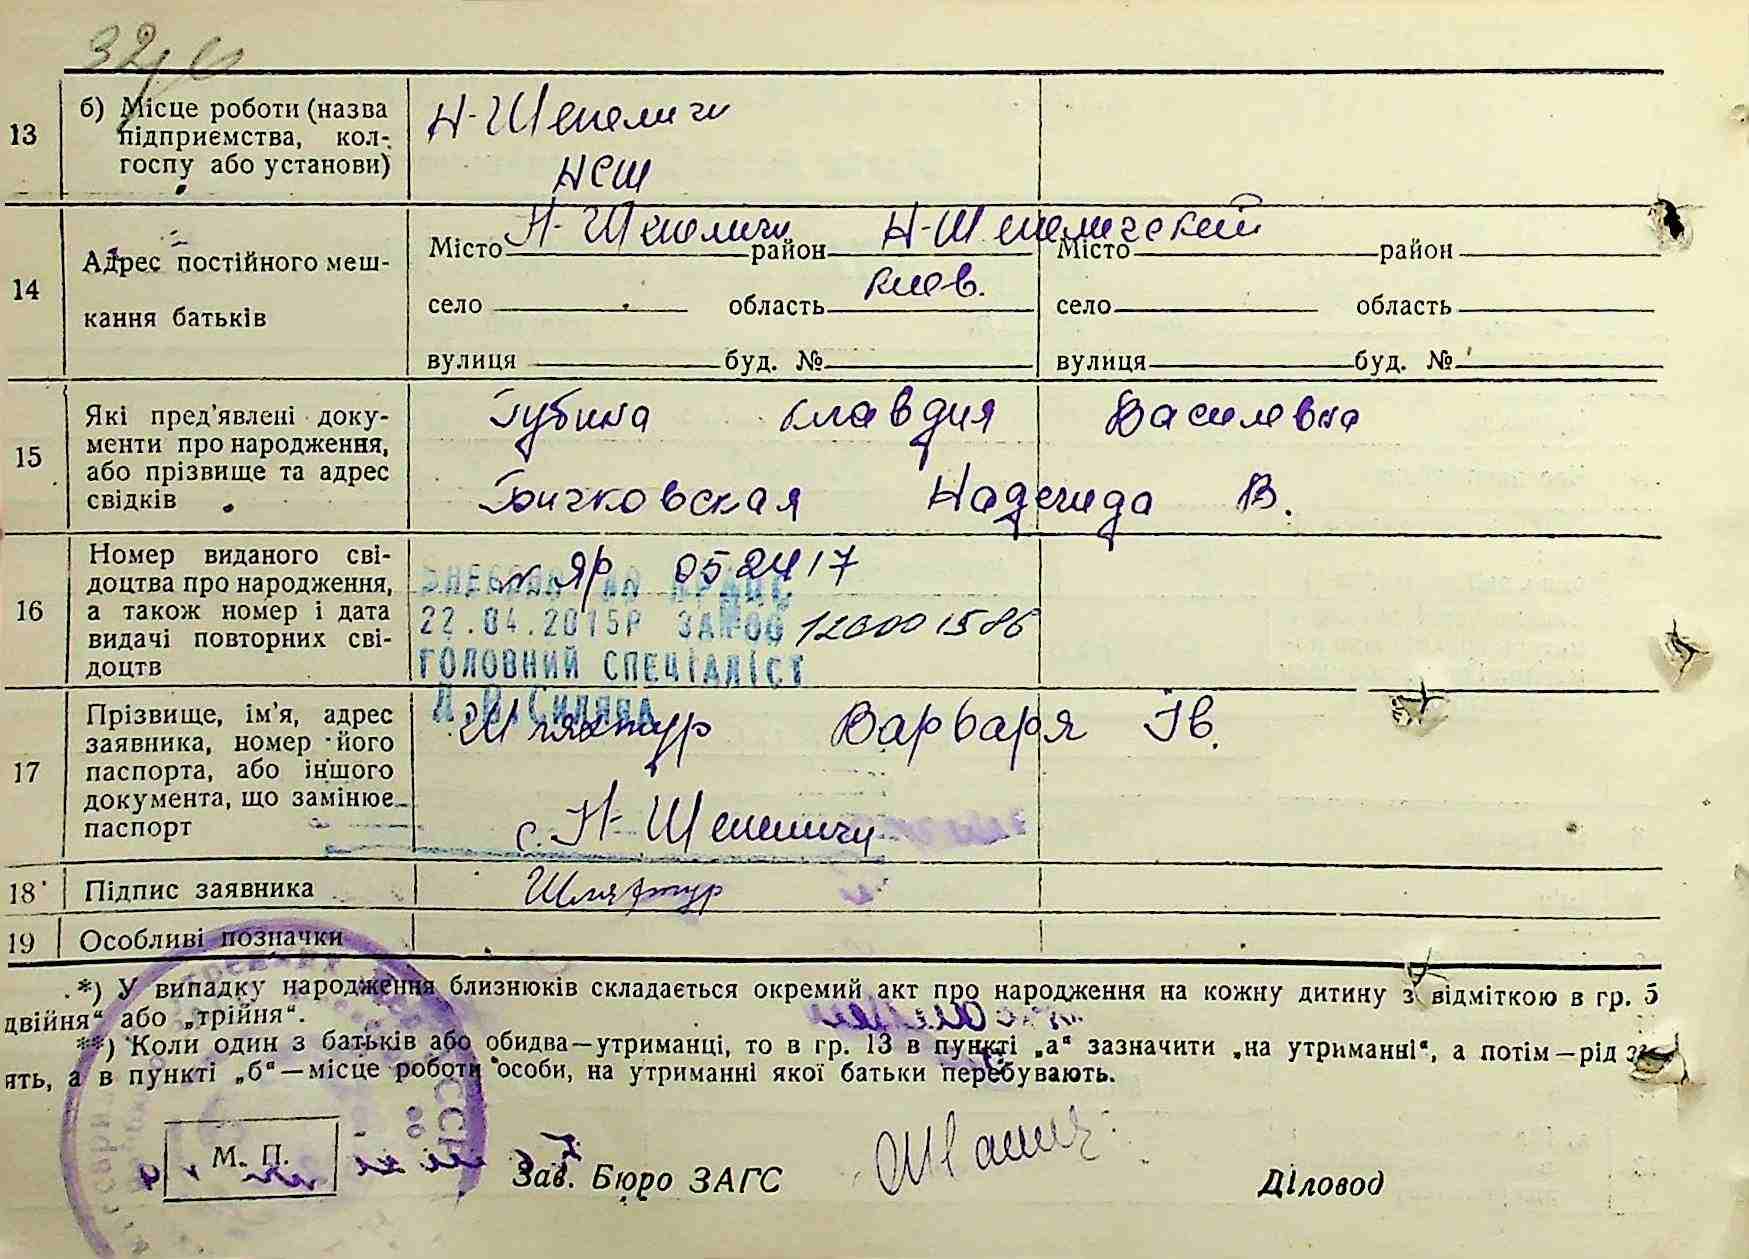 32
13 б) Місце роботи (назва
підприємства, кол-
госпу або установи)
Н-Шепеличи
НСШ
14 Адрес постійного меш-
кання батьків
Місто Н-Шепеличи район Н-Шепеличский Місто район
село область Киев. село область
вулиця буд. № вулиця буд. №
15 Які пред'явлені доку-
менти про народження,
або прізвище та адрес
свідків
Губина Клавдия Василевна
Бичковская Надежда В.
16 Номер виданого сві-
доцтва про народження,
а також номер і дата
видачі повторних сві-
доцтв
ЯР 052417
22.04.2015Р 120001586
ГОЛОВНИЙ СПЕЦІАЛІСТ
17 Прізвище, ім'я, адрес
заявника, номер його
паспорта, або іншого
документа, що замінює
паспорт
Шляхтур Варваря Ів.
с. Н-Шепеличи
18 Підпис заявника
Шляхтур
19 Особливі позначки
*) У випадку народження близнюків складається окремий акт про народження на кожну дитину з відміткою в гр. 5
двійня“ або „трійня“.
**) Коли один з батьків або обидва—утриманці, то в гр. 13 в пункті „а“ зазначити „на утриманні“, а потім—рід
ять, а в пункті „б“—місце роботи особи, на утриманні якої батьки перебувають.
М. П.
Зав. Бюро ЗАГС
Діловод